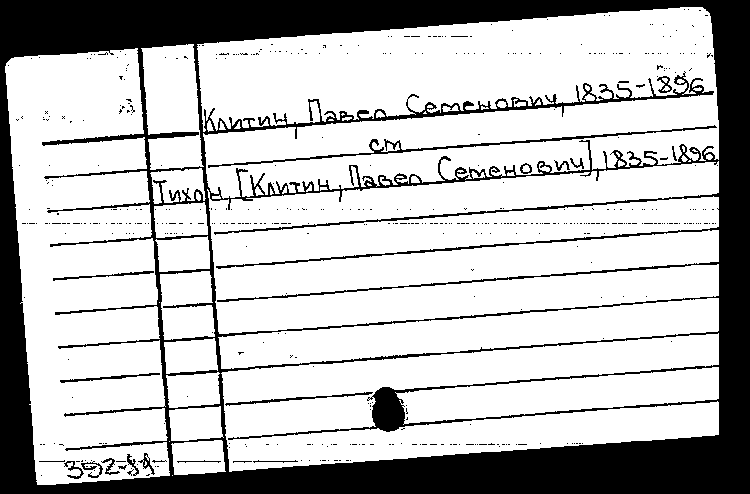 Клитин, Павел Семенович, 1835-1896
см
Тихон, [Клитин, Павел Семенович], 1835-1896,
392-89